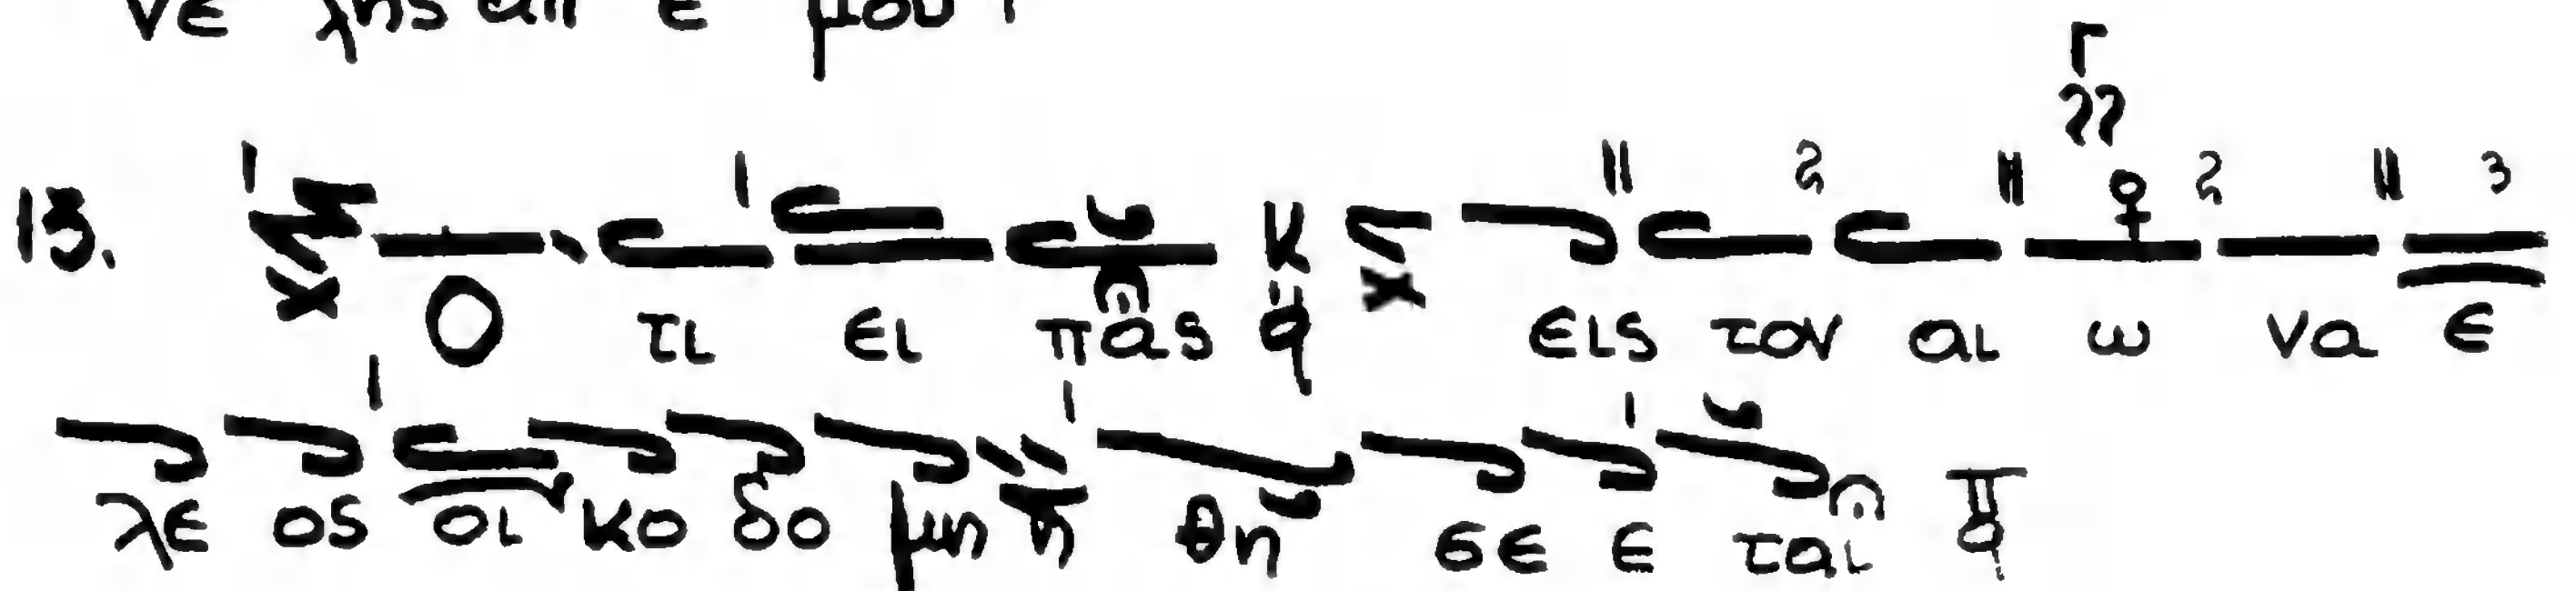 νε λης απ ε μου
13. Ο τι ει πας εις τον αι ω να ε
λε ος οι κο δο μη η θη σε ε ται